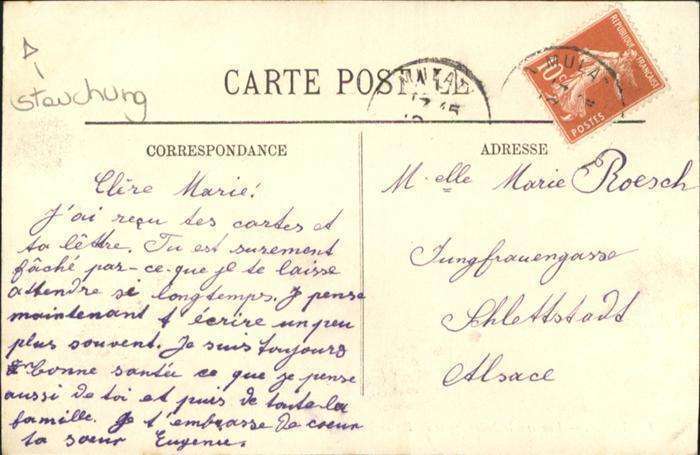 Stauchung
CARTE POSTALE
RÉPUBLIQUE FRANÇAISE
10c
POSTES
CORRESPONDANCE
ADRESSE
Chère Marie!
J'ai reçu tes cartes et
ta lêttre. Tu est surement
fâché par-ce-que je te laisse
attendre si longtemps. Je pense
maintenant t'écrire un peu
plus souvent. Je suis toujours
bonne santée ce que je pense
aussi de toi et puis de toute la
famille. Je t'embrasse de coeur
ta soeur Eugenie.
M-elle Marie Roesch
Jungfrauengasse
Schlettstadt
Alsace